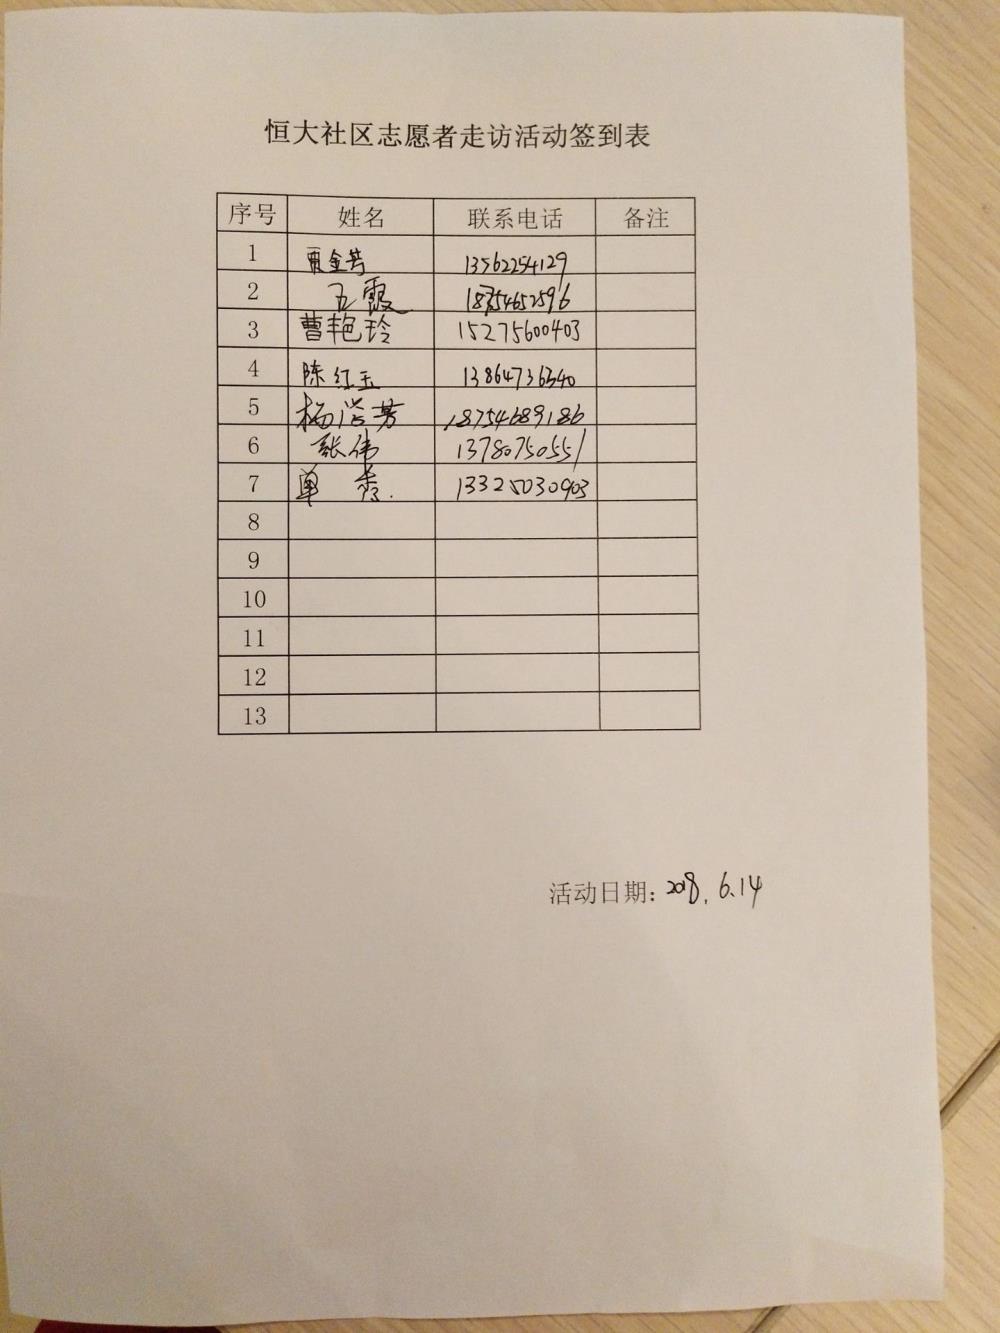 恒大社区志愿者走访活动签到表
序号 姓名 联系电话 备注
1 贾金芳 13562254129
2 王霞 18754652596
3 曹艳玲 15275600403
4 陈红玉 13864736340
5 杨芳 18754689186
6 张伟 13780750551
7 单秀 13325030903
8
9
10
11
12
13
活动日期：2018.6.14